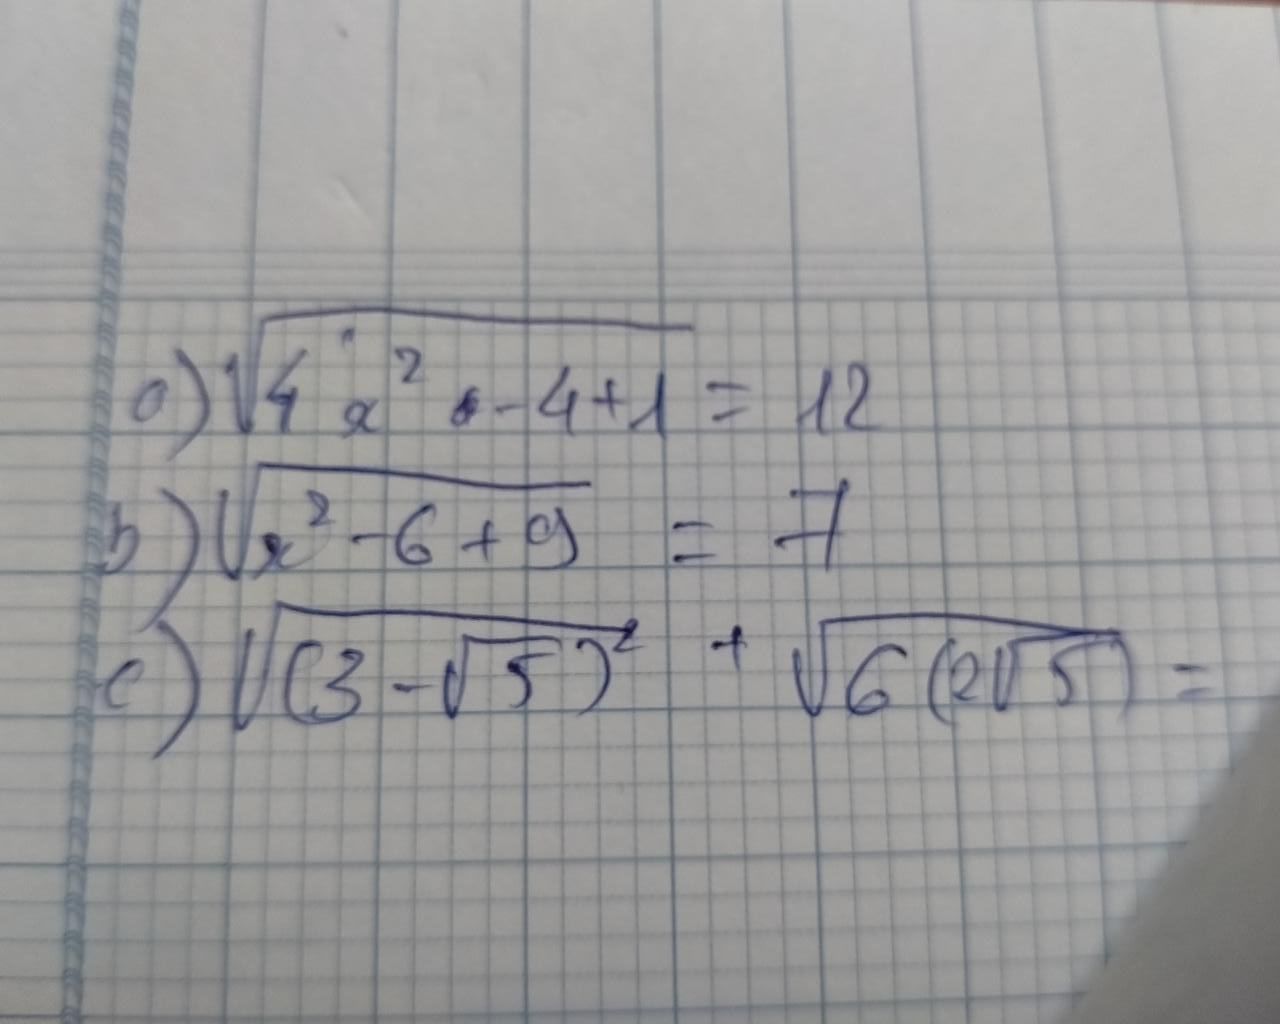 a) √4x² - 4 + 1 = 12
b) √x² - 6 + 9 = 7
c) √(3 - √5)² + √6(2√5) =